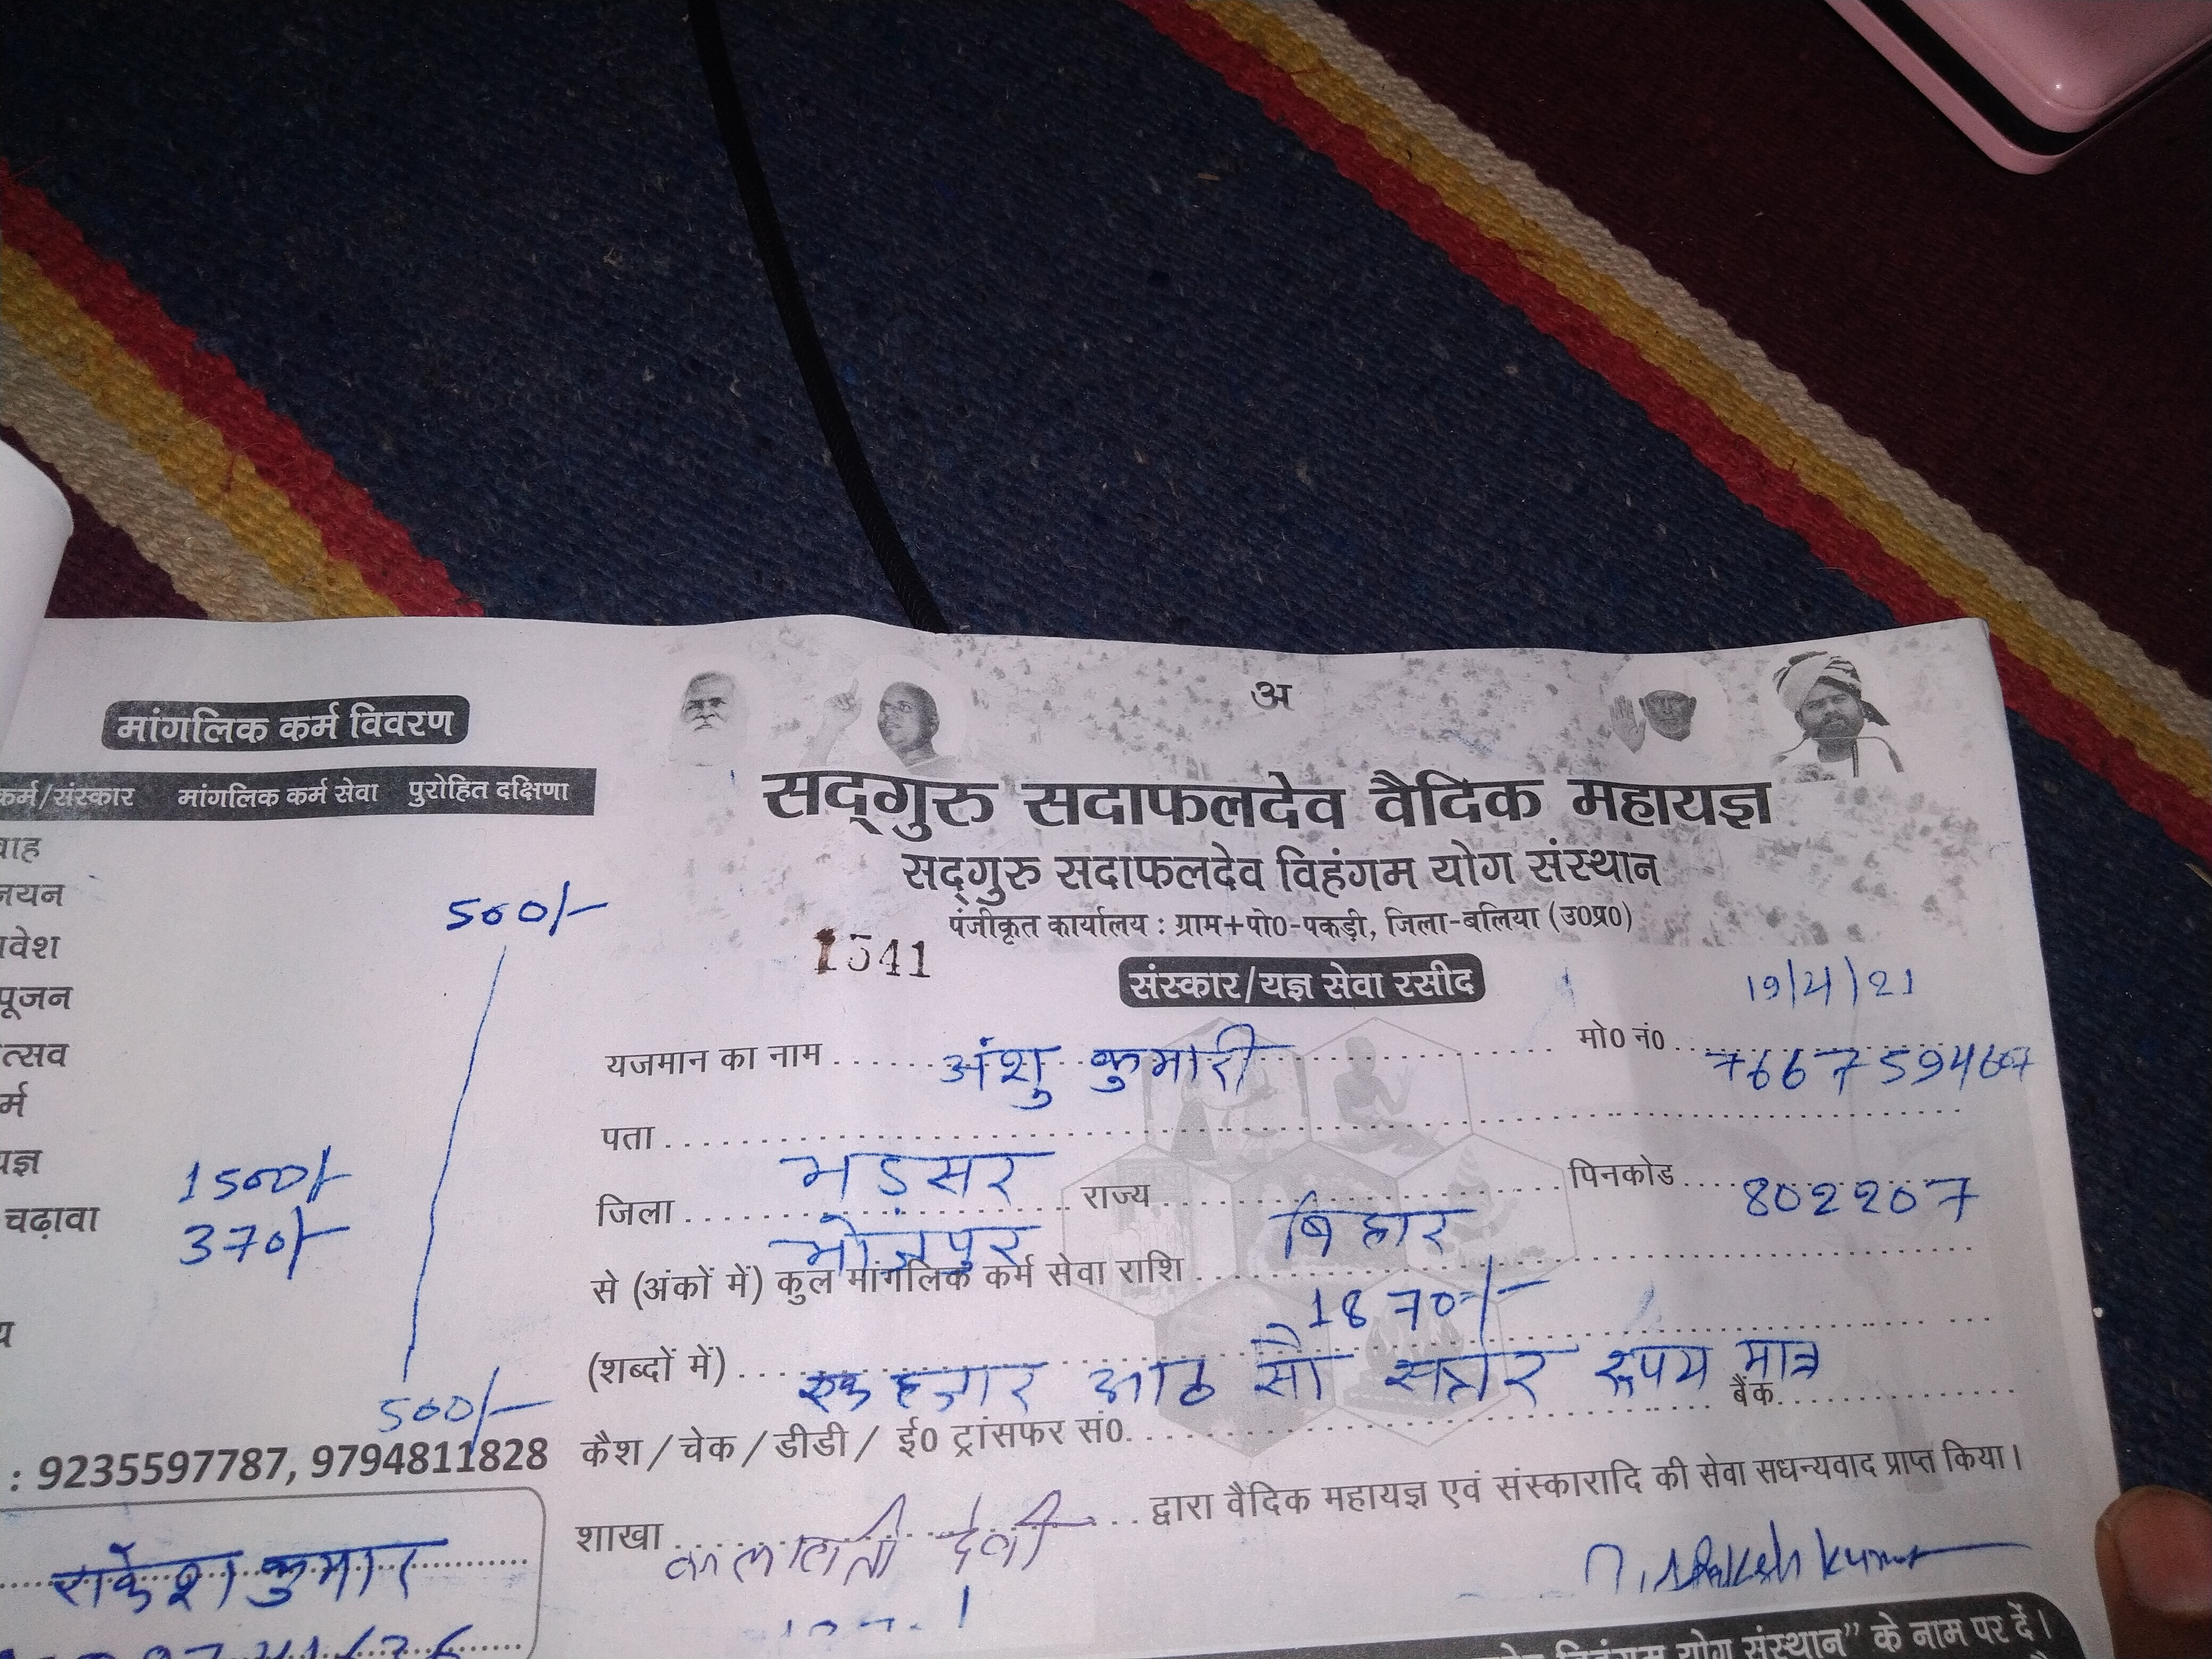 मांगलिक कर्म विवरण
कर्म/संस्कार मांगलिक कर्म सेवा पुरोहित दक्षिणा
वाह
नयन
500/-
वेश
पूजन
त्सव
र्म
यज्ञ 1500/-
चढ़ावा 370/-
य
500/-
: 9235597787, 9794811828
राकेश कुमार
अ
सद्गुरु सदाफलदेव वैदिक महायज्ञ
सद्गुरु सदाफलदेव विहंगम योग संस्थान
पंजीकृत कार्यालय : ग्राम+पो0-पकड़ी, जिला-बलिया (उ0प्र0)
1541
संस्कार/यज्ञ सेवा रसीद
19/4/21
यजमान का नाम अंशु कुमारी मो0 नं0 7667594667
पता
भड़सर
जिला भोजपुर राज्य बिहार पिनकोड 802207
से (अंकों में) कुल मांगलिक कर्म सेवा राशि 1870/-
(शब्दों में) एक हजार आठ सौ सत्तर रूपय मात्र
कैश / चेक / डीडी / ई0 ट्रांसफर सं0 बैंक
शाखा कलावती देवी द्वारा वैदिक महायज्ञ एवं संस्कारादि की सेवा सधन्यवाद प्राप्त किया।
Rakesh Kumar
विहंगम योग संस्थान” के नाम पर दें।